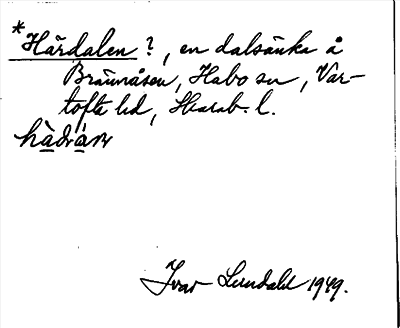 *Härdalen?, en dalsänka å
Brännåsen, Habo sn, Var-
tofta hd, Skarab. l.
Ivar Lundahl 1949.